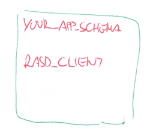 YOUR_APP_SCHEMA
RASD_CLIENT